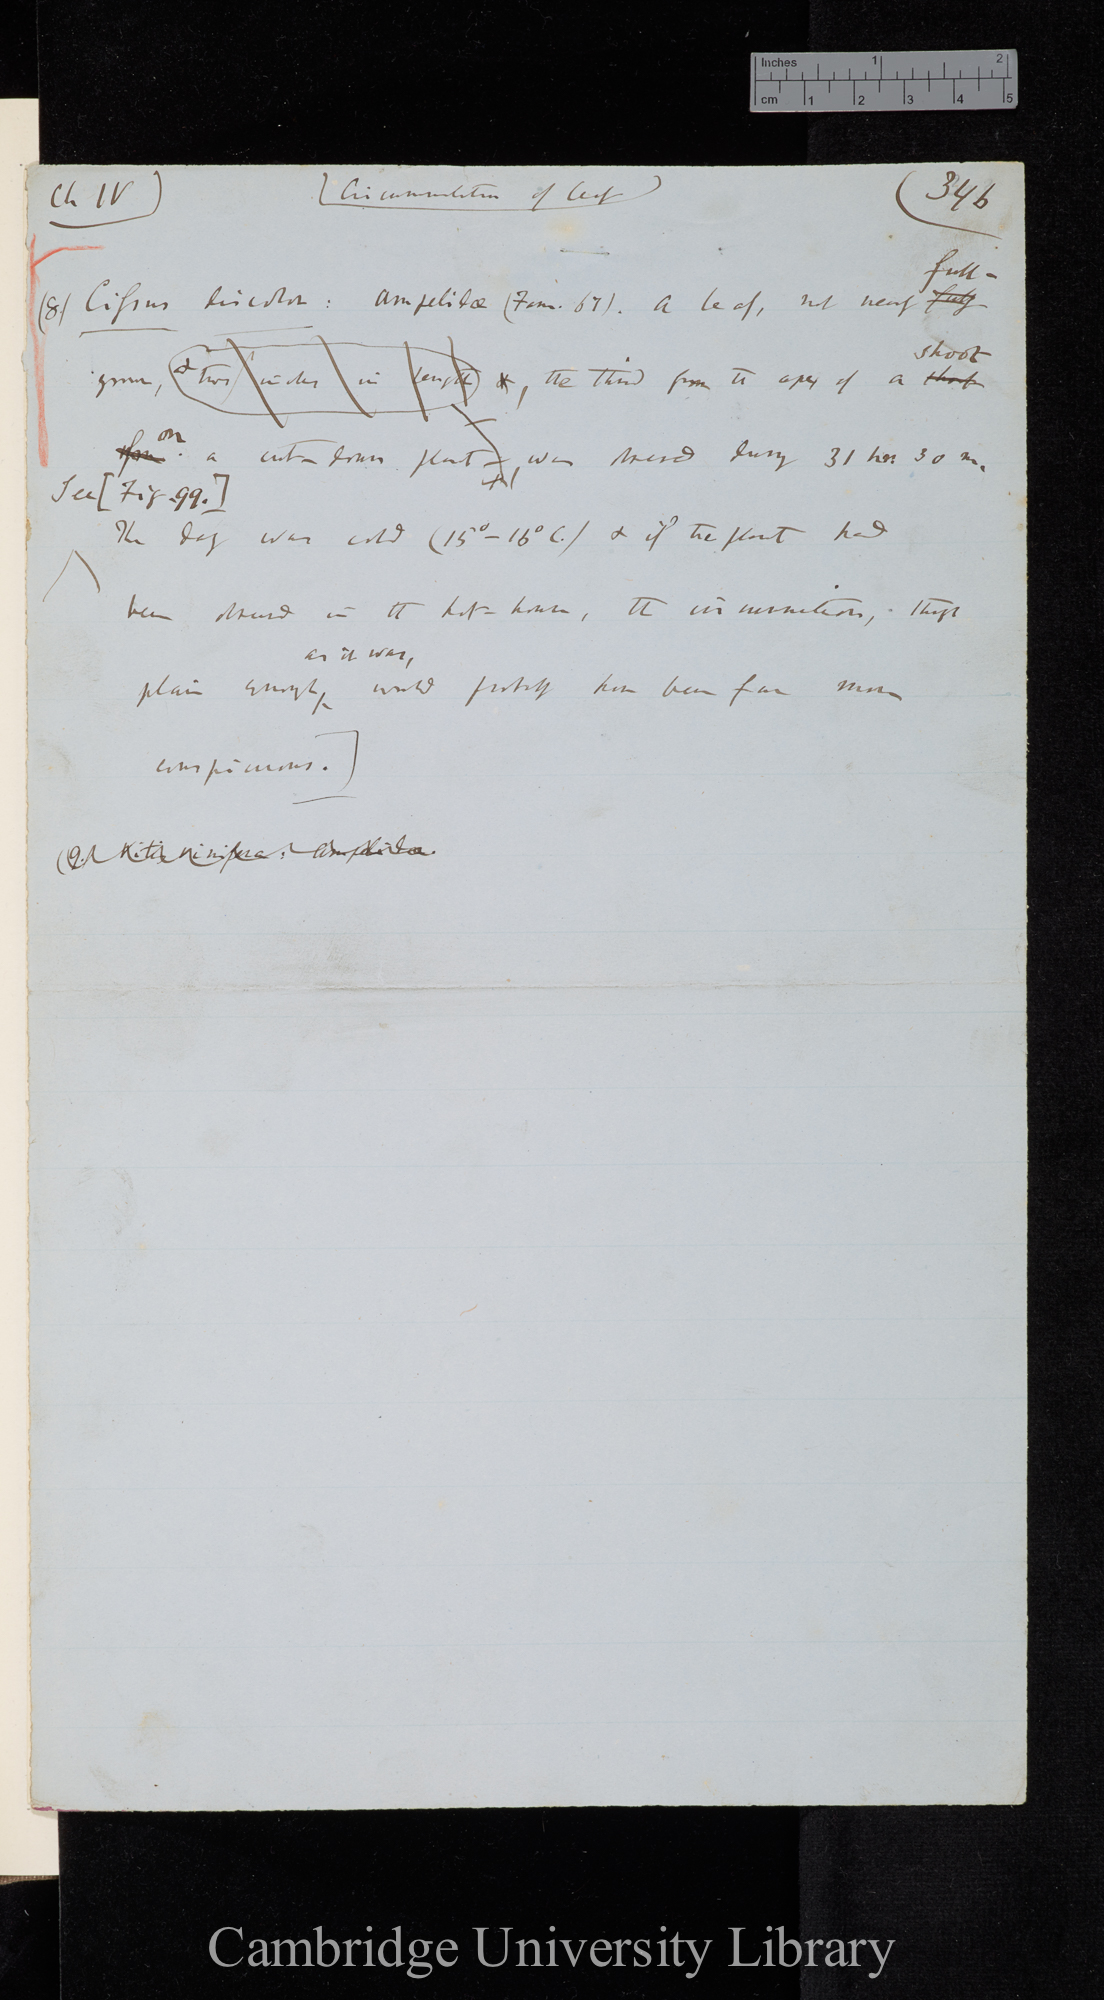 Inches 1 2
cm 1 2 3 4 5
Ch IV) [Circumnutation of leaf] (346
full-
(8.) Cissus discolor: Ampelidæ (Fam. 67). A leaf, not nearly fully
shoot
grown, (& two inches in length) *, the third from the apex of a shoot
on
from a cut-down plant, was observed during 31 hrs 30 m.
See [Fig. 99.]
The day was cold (15°–16° C.) & if the plant had
been observed in the hot-house, the circumnutation, though
as it was,
plain enough, would probably have been far more
conspicuous.]
(9.) Vitis vinifera: Ampelidæ.
Cambridge University Library